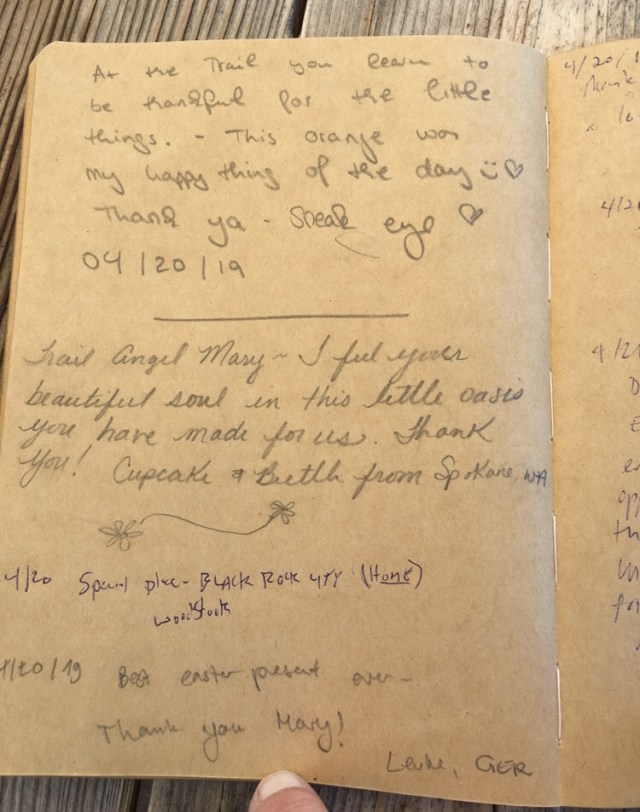 At the Trail you learn to
be thankful for the little
things. - This orange was
my happy thing of the day
Thank ya - Sneak eye
04/20/19
Trail Angel Mary ~ I feel your
beautiful soul in this little oasis
you have made for us. Thank
You! Cupcake & Beetle from Spokane, WA
4/20 BLACK ROCK CITY (HOME)
Woodstock
4/20/19 Best easter present ever -
Thank you Mary!
GER
4/20/1
4/2
4/21
D